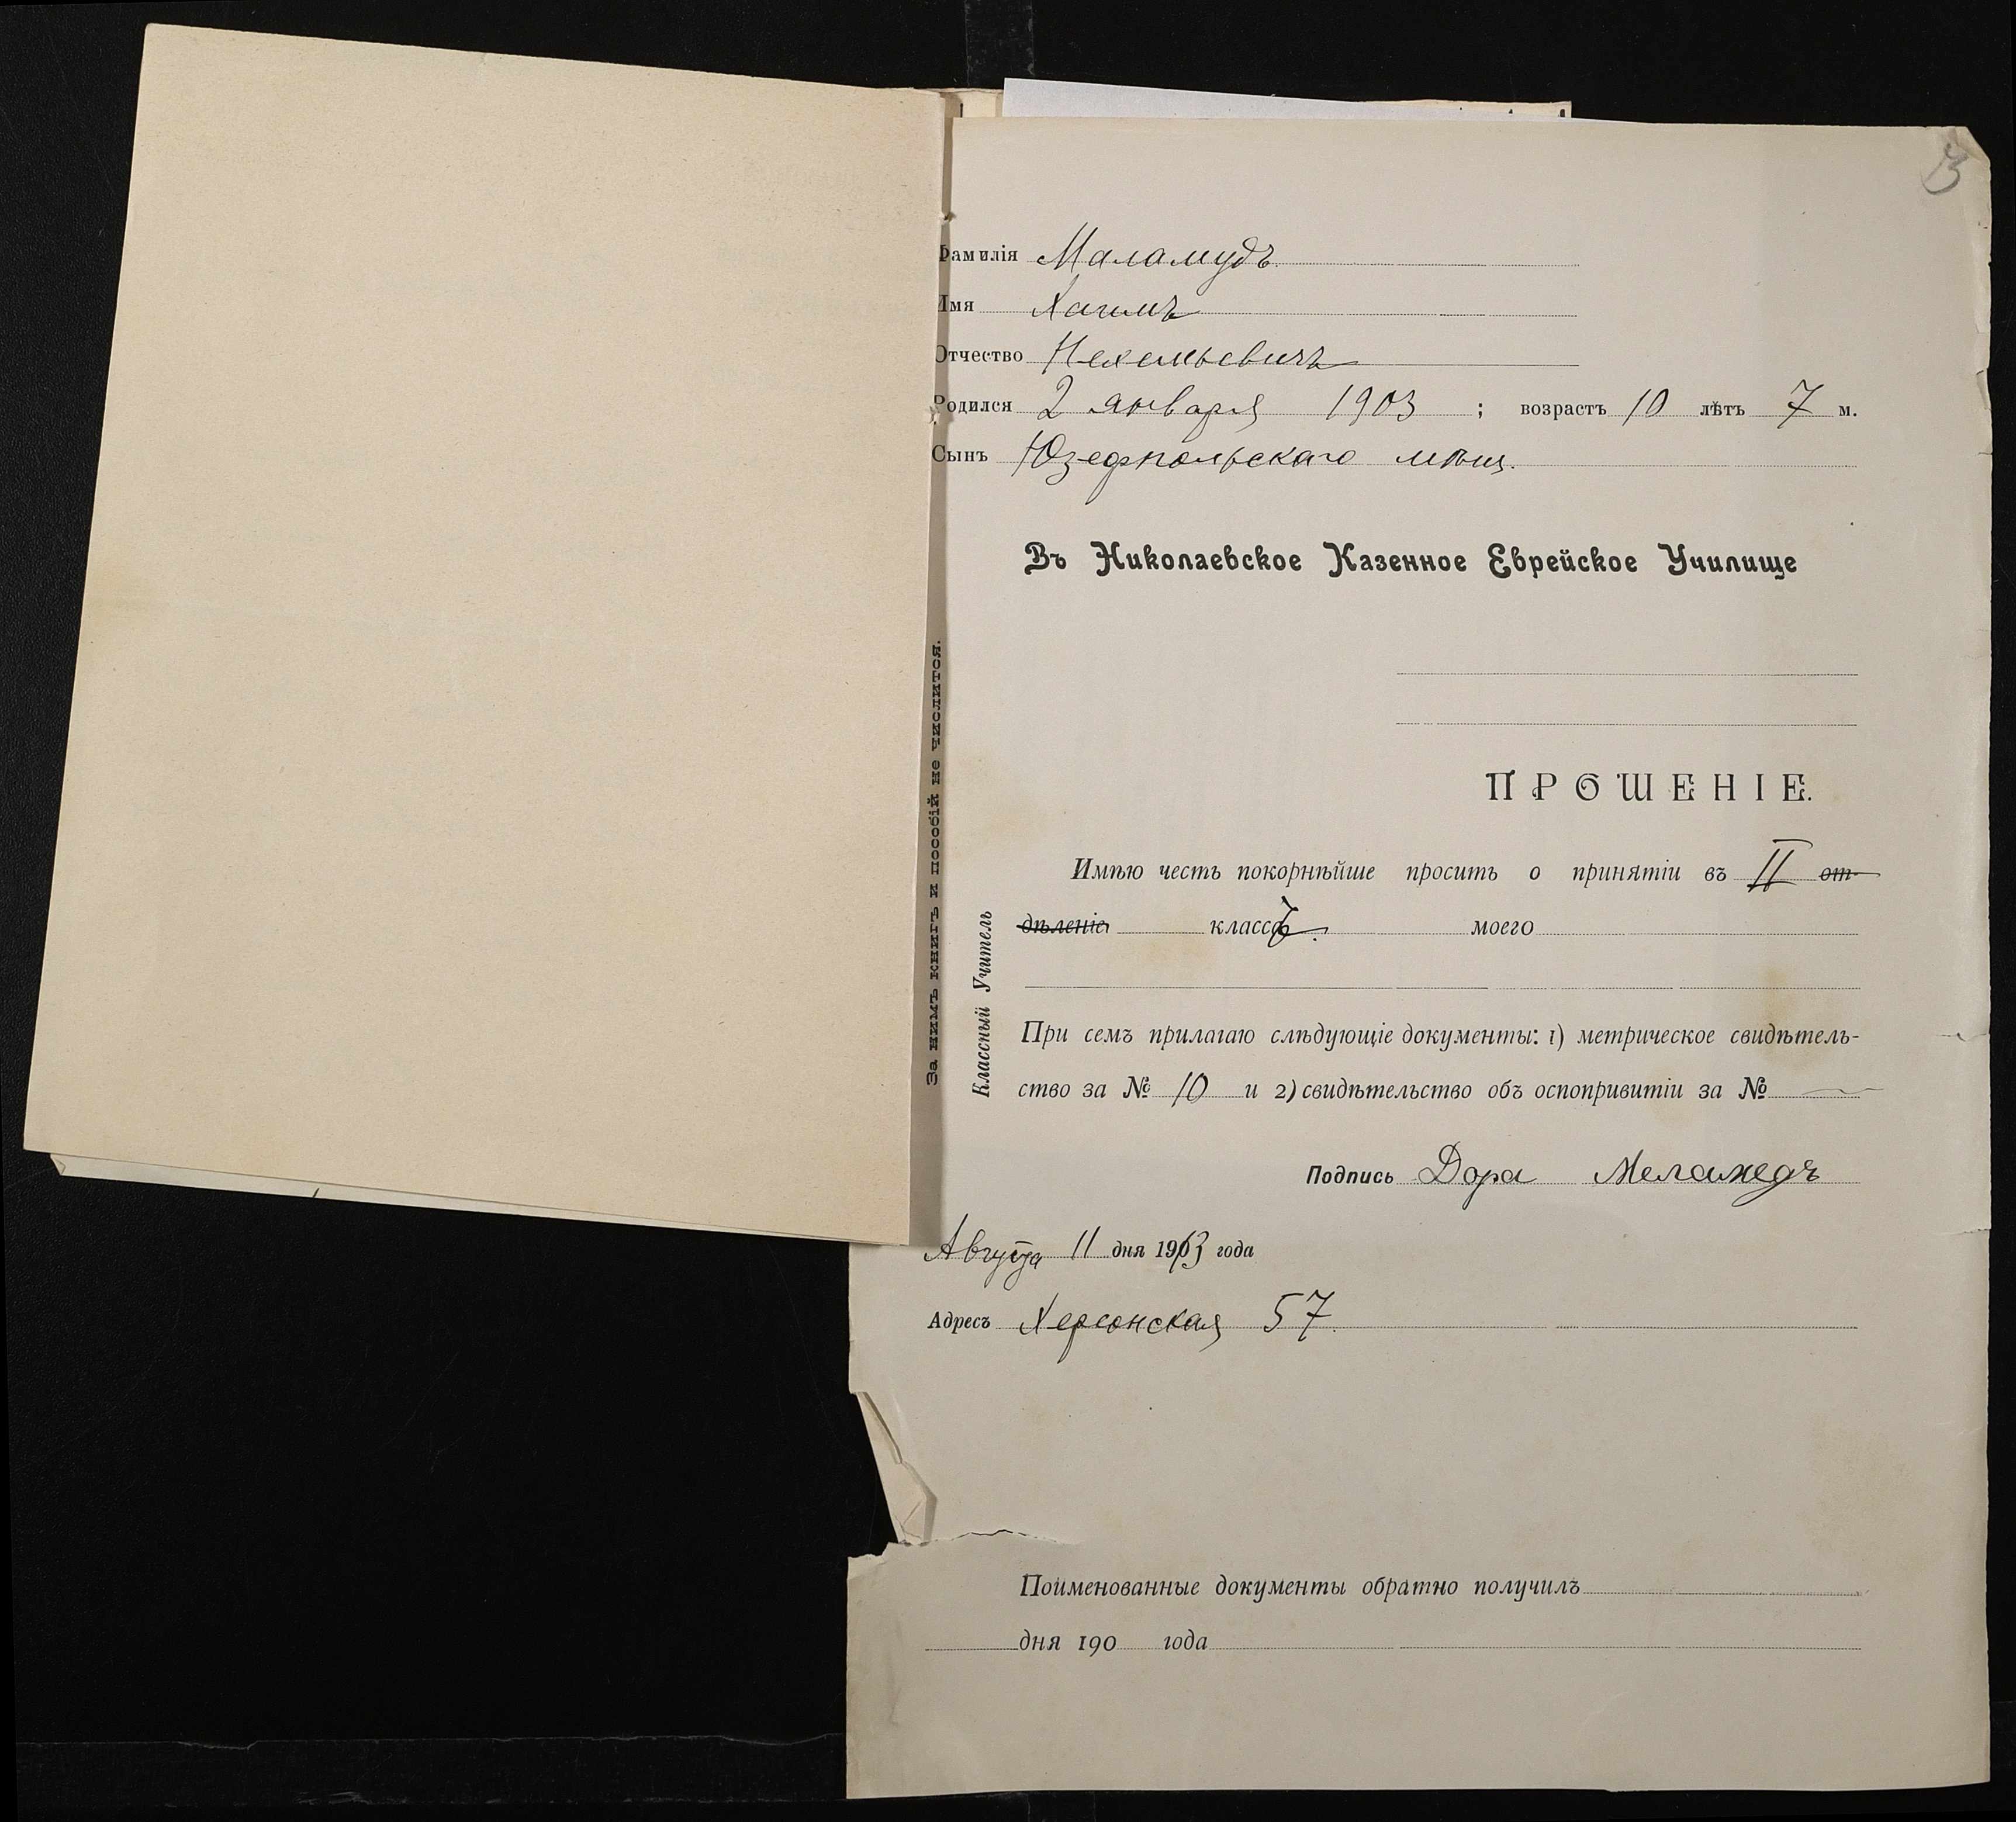 3
Фамилія Маламудъ
Имя Хаимъ
Отчество Нехемьевичъ
Родился 2 января 1903 ; возрастъ 10 лѣтъ 7 м.
Сынъ Юзефпольскаго мѣщ.
Въ Николаевское Казенное Еврейское Училище
ПРОШЕНІЕ.
Имѣю честь покорнѣйше просить о принятіи въ II от-
дѣленіе классъ моего
При семъ прилагаю слѣдующіе документы: 1) метрическое свидѣтель-
ство за № 10 и 2) свидѣтельство объ оспопривитіи за №
Подпись Дора Меламедъ
Августа 11 дня 1913 года
Адресъ Херсонская 57.
Поименованные документы обратно получилъ
дня 190 года
За нимъ книгъ и пособій не числится.
Классный Учитель